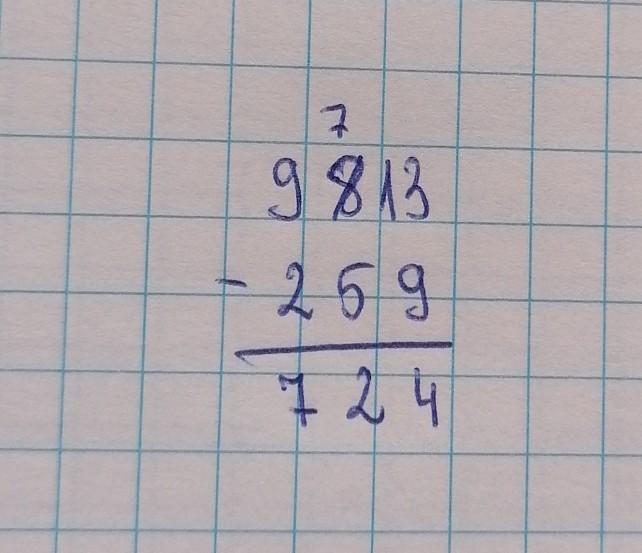 7
9 8 13
- 2 5 9
7 2 4